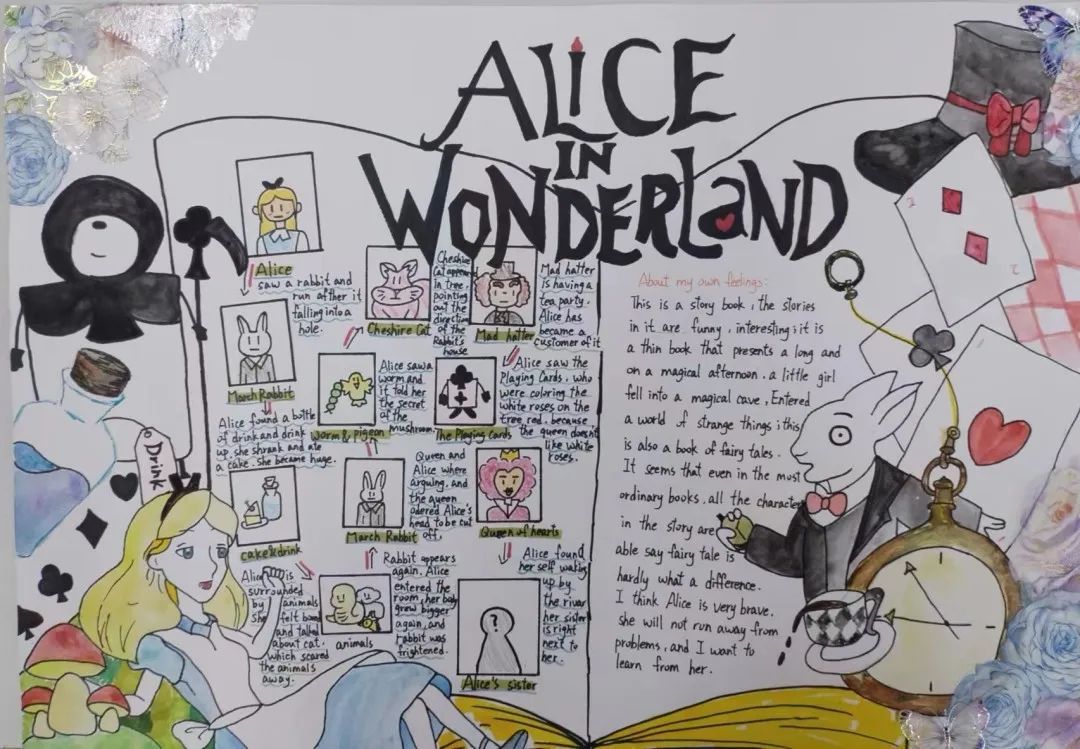 ALiCE
IN
WONDERLaND
Alice
saw a rabbit and
run afther it
falling into a
hole.
March Rabbit
Alice found a bottle
of drink and drink
up, she shrank and ate
a cake. she became huge.
Drink
cake&drink
Alice is
surrounded
by animals
She felt bored
and talked
about cat.
which scared
the animals
away.
animals
Rabbit appears
again. Alice
entered the
room, her body
grew bigger
again, and
rabbit was
frightened.
March Rabbit
Alice saw a
worm and
it told her
the secret
of the
mushroom.
worm & pigeon
Cheshire Cat
Cheshire
Cat appeared
in tree,
pointing
out the
direction
of the
Rabbit's
house
Mad hatter
Mad hatter
is having a
tea party.
Alice has
became a
customer of it
Alice saw the
Playing Cards, who
were coloring the
white roses on the
tree red, because
the queen doesn't
like white
roses.
The Playing Cards
Queen and
Alice where
arguing, and
the queen
odered Alice's
head to be cut
off.
Queen of hearts
Alice found
her self waking
up by
the river
her sister
is right
next to
her.
?
Alice's sister
About my own feelings:
This is a story book, the stories
in it are funny, interesting; it is
a thin book that presents a long and
on a magical afternoon. a little girl
fell into a magical cave, Entered
a world of strange things; this
is also a book of fairy tales.
It seems that even in the most
ordinary books, all the character
in the story are
able say fairy tale is
hardly what a difference.
I think Alice is very brave.
she will not run away from
problems, and I want to
learn from her.